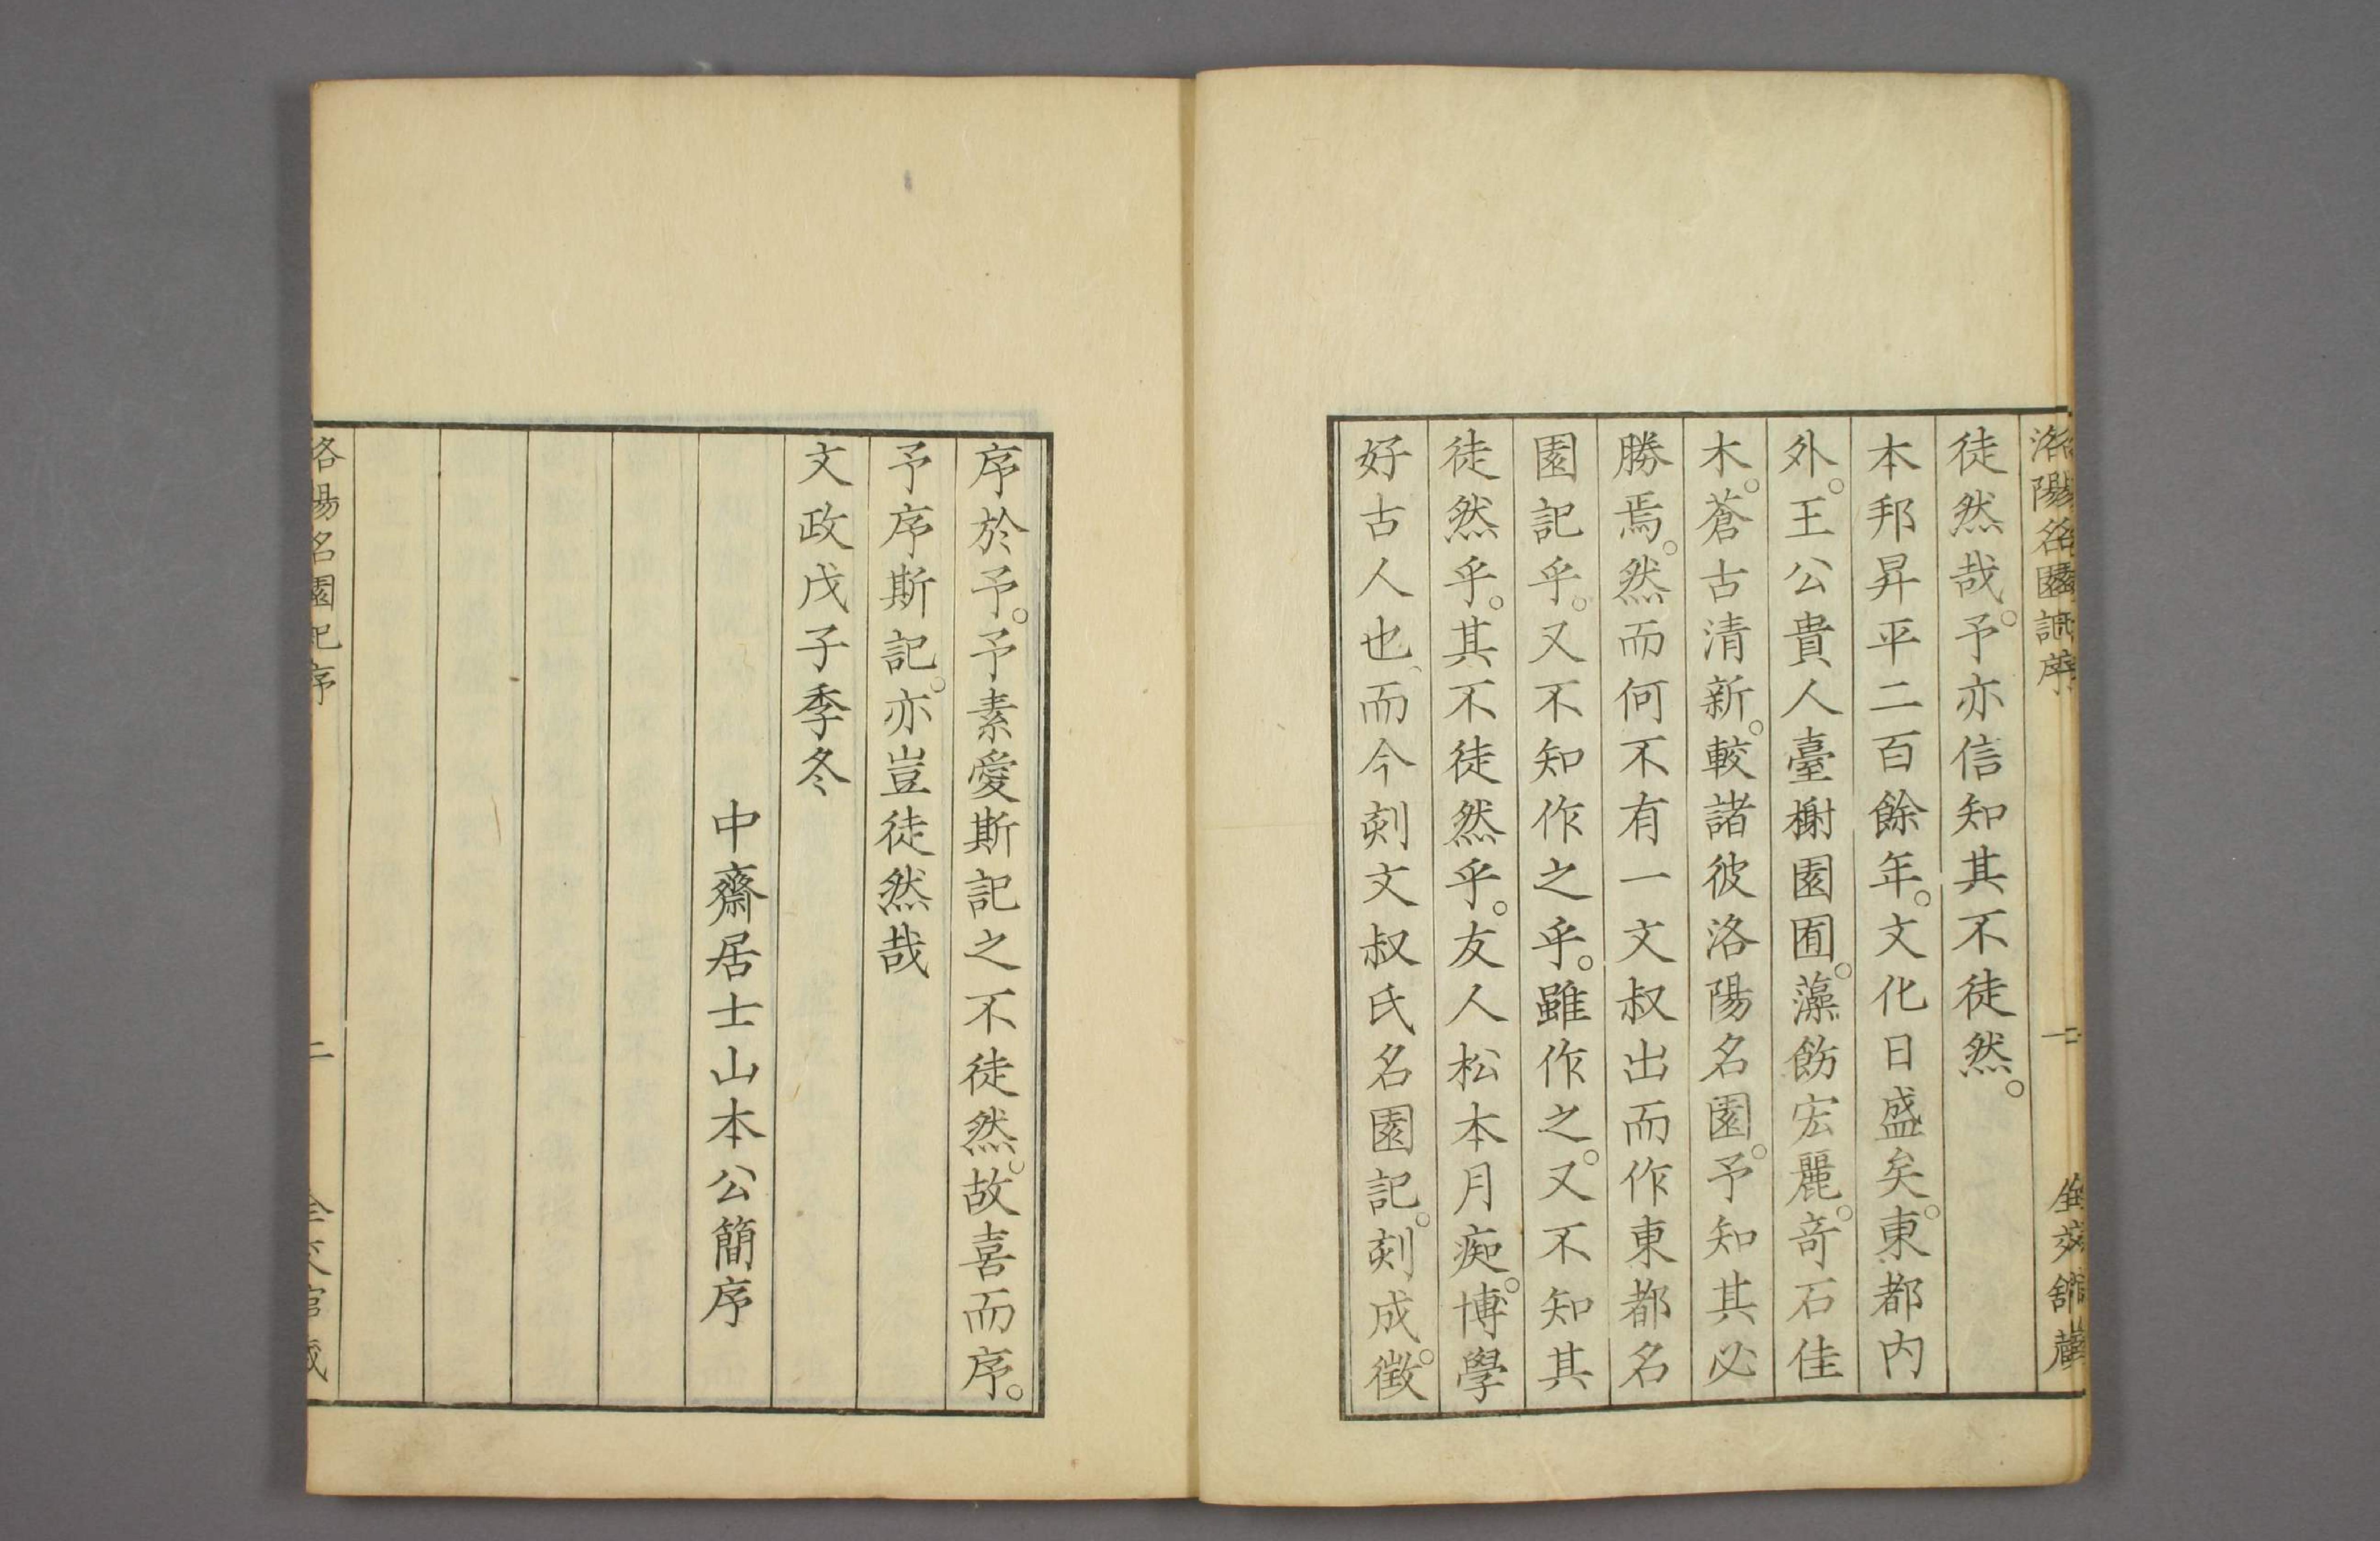 洛陽名園記序
一
全交館藏
徒然哉。予亦信知其不徒然。
本邦昇平二百餘年。文化日盛矣。東都內
外。王公貴人臺榭園囿。藻飭宏麗。奇石佳
木。蒼古清新。較諸彼洛陽名園。予知其必
勝焉。然而何不有一文叔出而作東都名
園記乎。又不知作之乎。雖作之。又不知其
徒然乎。其不徒然乎。友人松本月痴。博學
好古人也、而今刻文叔氏名園記。刻成。徵
序於予。予素愛斯記之不徒然。故喜而序。
予序斯記。亦豈徒然哉
文政戊子季冬
中齋居士山本公簡序
洛陽名園記序
二